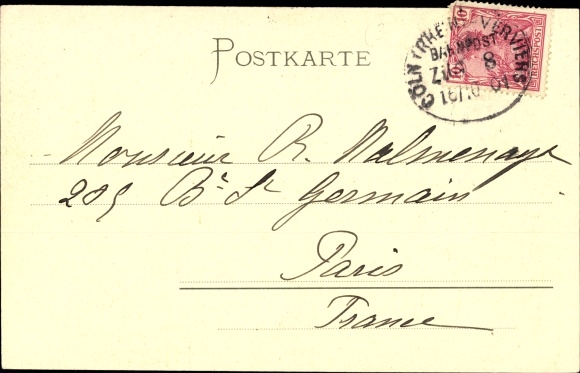 POSTKARTE
CÖLN (RHEIN) VERVIERS
BAHNPOST
ZUG 8
10
REICHSPOST
Monsieur R. Malmenayde
205 Bd St Germain
Paris
France